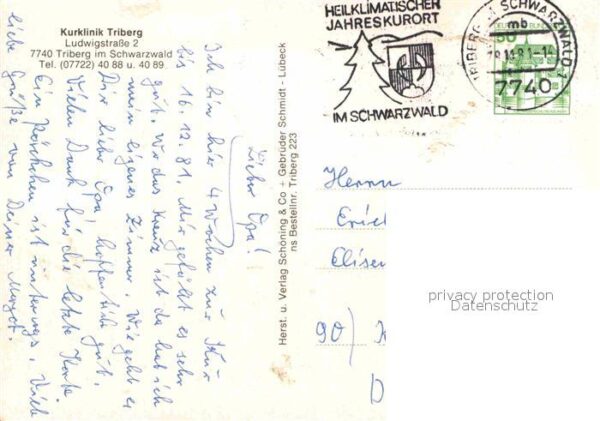 Kurklinik Triberg
Ludwigstraße 2
7740 Triberg im Schwarzwald
Tel. (07722) 40 88 u. 40 89
Lieber Opa!
Ich bin hier 4 Wochen zur Kur
bis 16.12.81. Mir gefällt es sehr
gut. Wo das Kreuz ist da hab ich
mein eigenes Zimmer. Wie geht es
Dir lieber Opa? hoffentlich gut.
Vielen Dank für die letzte Karte
Ein Päckchen ist unterwegs. Viele
liebe Grüße von Deiner
Herst. u. Verlag Schöning & Co + Gebrüder Schmidt - Lübeck
ns Bestellnr. Triberg 223
HEILKLIMATISCHER
JAHRESKURORT
IM SCHWARZWALD
TRIBERG IM SCHWARZWALD 1
mb
7740
50
Herrn
90)
privacy protection
Datenschutz